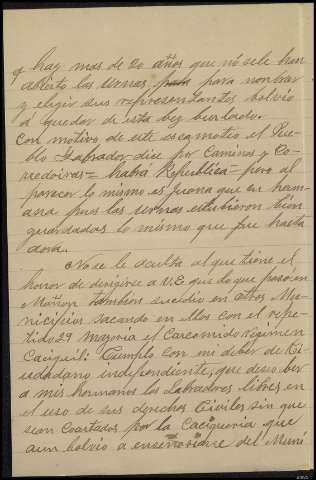 q hay mas de 20 años que nó sele han
abierto las urnas para nonbrar
y elegir sus representantes bolvio
á quedar de esta bez burlado.
Con motivo de este escamotio el Pue-
blo Labrador dice por Caminos y Co-
rredoiras= habrá Republica= pero al
parecer lo mismo es juana que su herm-
ana pues las urnas estubieron bien
guardadas lo mismo que fue hasta
aora.
No se le oculta al que tiene el
honor de dirigirse a V.E. que lo que paso en
Mañon tambien sucedio en otros Mu-
nicipios sacando en ellos con el repe-
tido 29 mayoria el Carcomido regimen
Caciquil: Cumplo con mi deber de Ci-
udadano independiente, que deseo ber
a mis hermanos los Labradores libres en
el uso de sus derechos Civiles sin que
sean Coartados por la Caciqueria que
aun bolvio a enseñorearse del Muni